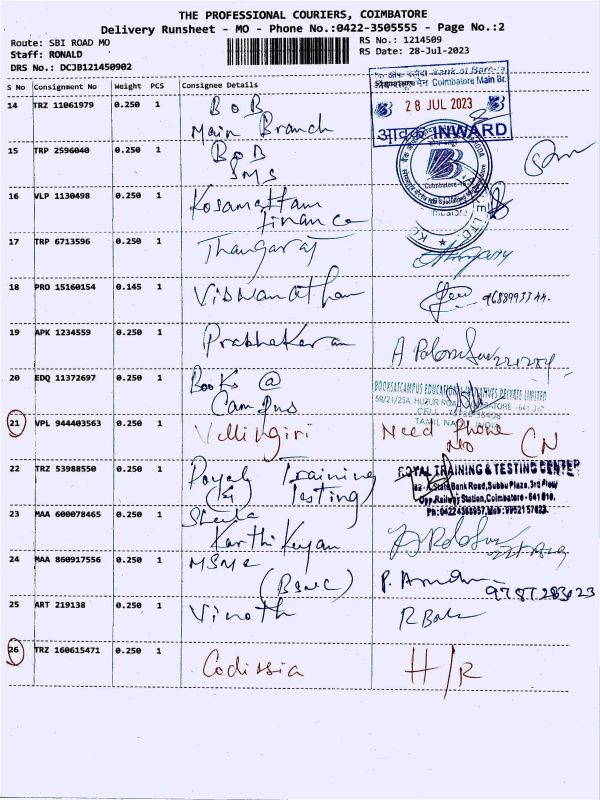 THE PROFESSIONAL COURIERS, COIMBATORE
Delivery Runsheet - MO - Phone No.:0422-3505555 - Page No.:2
Route: SBI ROAD MO
RS No.: 1214509
Staff: RONALD
RS Date: 28-Jul-2023
DRS No.: DCJB121450902
S No Consignment No Weight PCS Consignee Details
Bank of Baroda
Coimbatore Main Br.
28 JUL 2023
आवक INWARD
14 TRZ 11061979 0.250 1 BOB
Main Branch
15 TRP 2596040 0.250 1 BOB
SMS
Coimbatore
16 VLP 1130498 0.250 1 Kosamattam
Finance
17 TRP 6713596 0.250 1 Thangaraj
18 PRO 15160154 0.145 1 Viswanathan
19 APK 1234559 0.250 1 Prabhakaran
20 EDQ 11372697 0.250 1 Books @
Campus
BOOKSATCAMPUS EDUCATIONAL INITIATIVES PRIVATE LIMITED
59/21/23A, HUZUR ROAD, COIMBATORE - 641 018
TAMIL NADU, INDIA
21 VPL 944403563 0.250 1 Vellingiri Need Phone
No CN
22 TRZ 53988550 0.250 1 Royal Training
(&) Testing)
ROYAL TRAINING & TESTING CENTER
State Bank Road, Subbu Plaza, 3rd Floor
Opp. Railway Station, Coimbatore - 641 018.
23 MAA 600078465 0.250 1
Karthikeyan
24 MAA 860917556 0.250 1 MSME
(BSNC)
25 ART 219138 0.250 1 Vinoth R Bala
26 TRZ 160615471 0.250 1 Codissia H/R